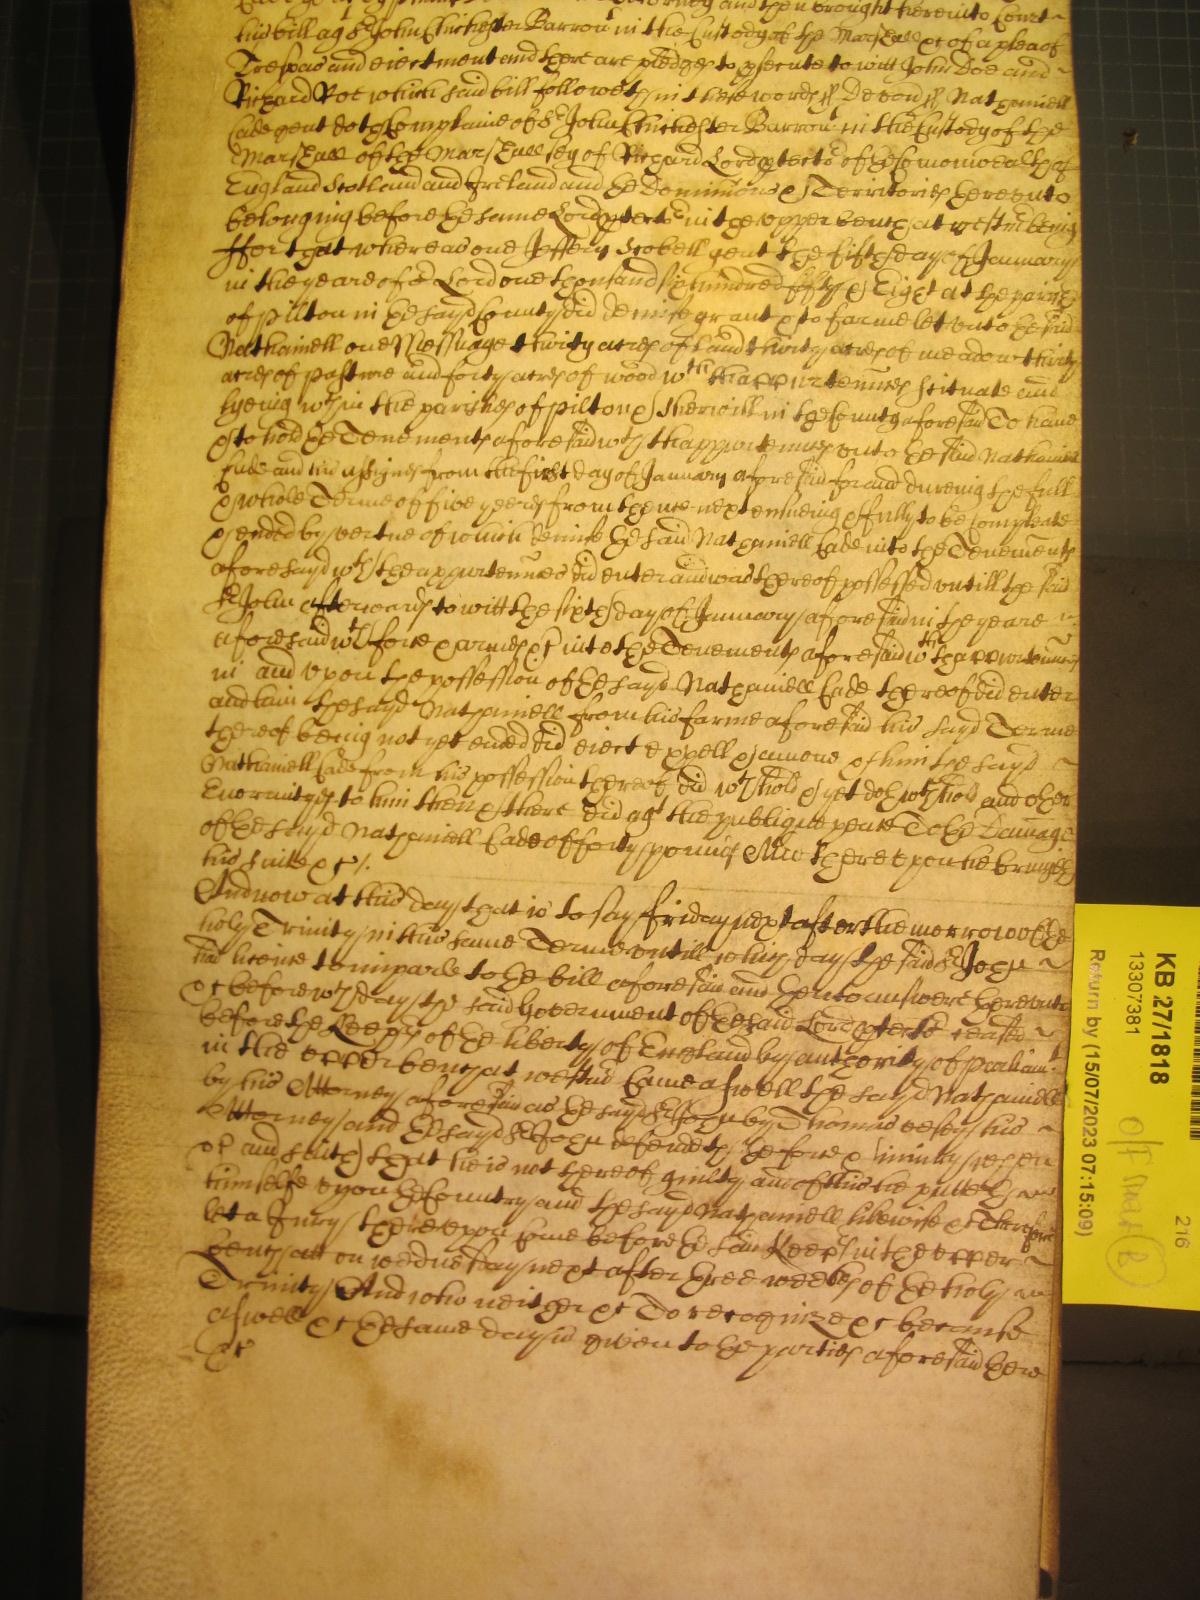 his bill ag St John Chichester Barron in the Custody of the Marshall &c of a plea of
Trespas and eiectment and there are pledges to psecute to witt John Doe and
Richard Roe which said bill followeth in these words ss Devon ss Nathaniell
Cade gent doth Complaine of Sr John Chichester Barron in the Custody of the
Marshall of the Marshallsey of Richard Lord ptector of the Comonwealth of
England Scotland and Ireland and the Dominions & Territories thereunto
belonging before the same Lord ptector in the upper bench at westm being
ffor that whereas one Jeffery Scobell gent the fifth day of January
in the yeare of or Lord one thousand six hundred fifty & Eight at the parish
of Pilton in the sayd County did demise grant & to farme lett unto the said
Nathaniell one Messuage thirty acres of land thirty acres of meadow thirty
acres of pasture and forty acres of wood wth thappurtennces scituate and
lyeing wthin the parishes of Pilton & Sherwill in the County aforesaid To have
& to hold the Tenements aforesaid wth thappurtennces unto the said Nathaniell
Cade and his assignes from the first day of January aforesaid for and dureing the full
& whole Terme of five yeares from thence next ensueing & fully to be compleate
& ended by vertue of which demise the said Nathaniell Cade into the Tenements
aforesayd wth the appurtennces did enter and was thereof possessed untill the said
Sr John afterwards to witt the sixth day of January aforesaid in the yeare
aforesaid wth force & armes &c into the Tenements aforesaid wth thappurtennces
in and upon the possession of the sayd Nathaniell Cade thereof did enter
and him the sayd Nathaniell from his farme aforesaid his sayd Terme
thereof being not yet ended did eiect expell & amove & him the sayd
Nathaniell Cade from his possession thereof did wthhold & yet doth wthhold and other
Enormityes to him then & there did agt the publique peace To the Damage
of the sayd Nathaniell Cade of forty pounds And thereupon he bringeth
his suite &c
And now at this day that is to say ffriday next after the morrow of the
holy Trinity in this same Terme untill which day the said Sr John
had licence to imparle to the bill aforesaid and then to answere thereunto
&c before wch day the said Government of the said Lord ptector ceased
before the Keepers of the liberty of England by authority of Parliamt
in the upper bench at westm came aswell the sayd Nathaniell
by his Attorney aforesaid as the sayd Sr John by Thomas his
Attorney and the sayd Sr John defendeth the force & iniury when
&c and saith that he is not thereof guilty and of this he putteth
himselfe upon the Country and the sayd Nathaniell likewise &c Therefore
let a Jury thereupon come before the said Keeprs in the upper
bench att on wednesday next after three weekes of the holy
Trinity And who neither &c To recognize &c because
aswell &c the same day is given to the parties aforesaid there
&c
KB 27/1818
13307381
Return by (15/07/2023 07:15:09)
216